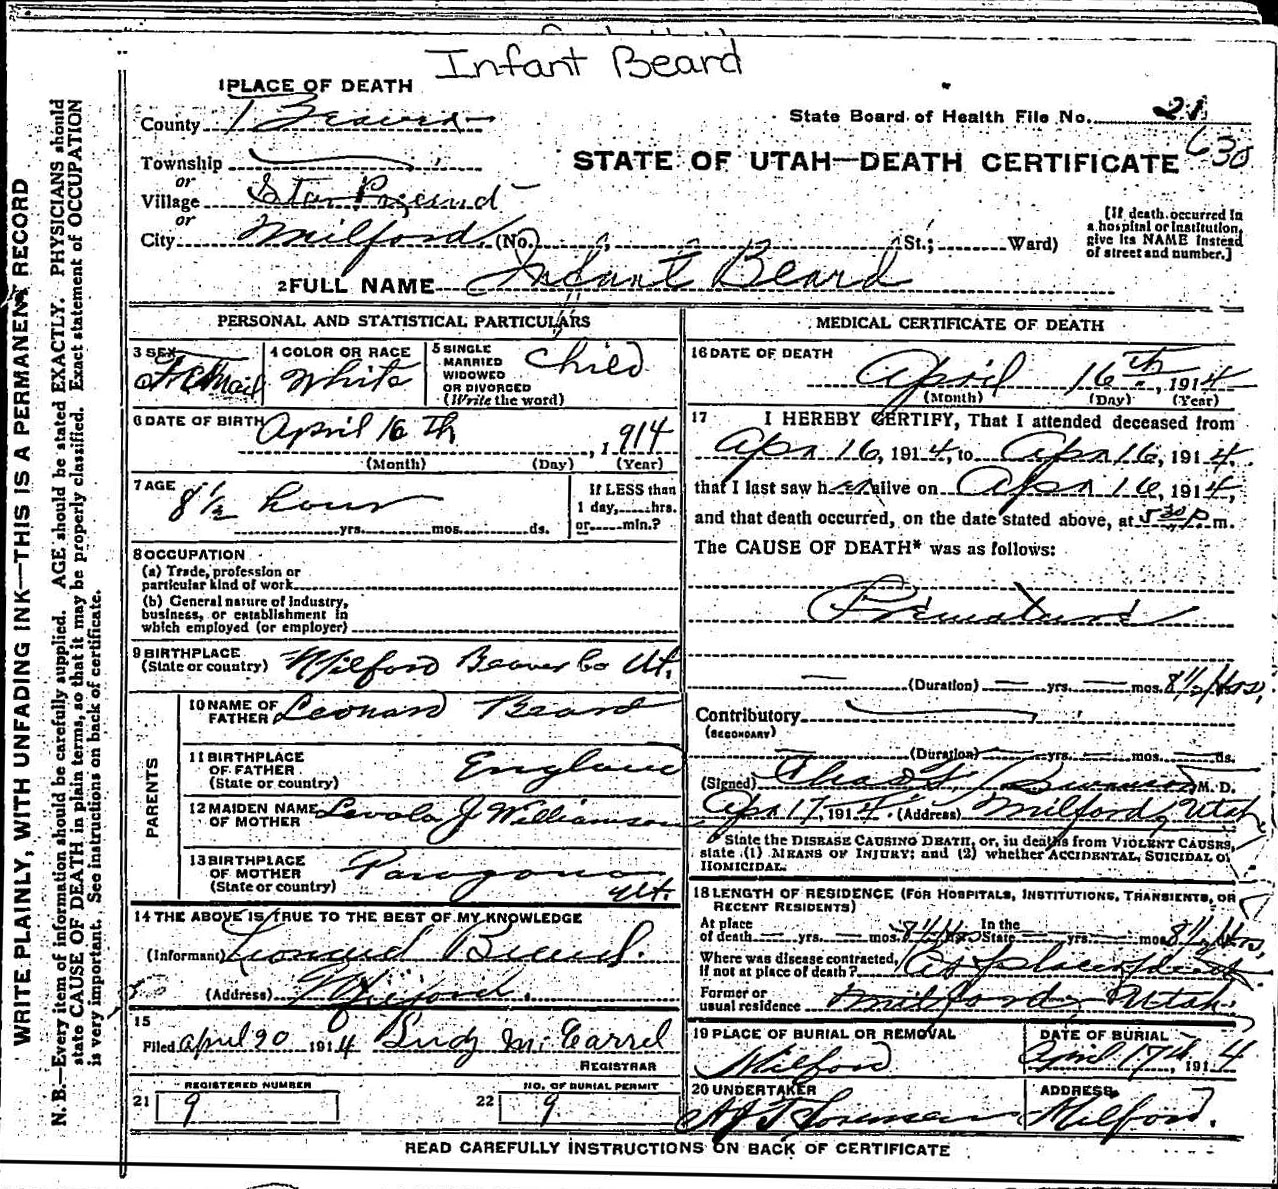 Infant Beard
1 PLACE OF DEATH
County Beaver
State Board of Health File No. 21
630
Township
or
Village Star Precinct
or
City Milford (No. St.; Ward)
STATE OF UTAH—DEATH CERTIFICATE
[If death occurred in
a hospital or institution,
give its NAME instead
of street and number.]
2 FULL NAME Infant Beard
PERSONAL AND STATISTICAL PARTICULARS
3 SEX
4 COLOR OR RACE White
5 SINGLE
MARRIED
WIDOWED
OR DIVORCED
(Write the word)
Child
6 DATE OF BIRTH April 16th, 1914
(Month) (Day) (Year)
7 AGE 8½ hour
yrs. mos. ds.
If LESS than
1 day, hrs.
or min.?
8 OCCUPATION
(a) Trade, profession or
particular kind of work
(b) General nature of industry,
business, or establishment in
which employed (or employer)
9 BIRTHPLACE
(State or country) Milford Beaver Co Ut.
PARENTS
10 NAME OF
FATHER Leonard Beard
11 BIRTHPLACE
OF FATHER
(State or country) England
12 MAIDEN NAME
OF MOTHER Levola J Williamson
13 BIRTHPLACE
OF MOTHER
(State or country) Paragona
Ut.
14 THE ABOVE IS TRUE TO THE BEST OF MY KNOWLEDGE
(Informant) Leonard Beard.
(Address) Milford.
15
Filed April 20 1914
REGISTRAR
REGISTERED NUMBER
21 9
NO. OF BURIAL PERMIT
22 9
MEDICAL CERTIFICATE OF DEATH
16 DATE OF DEATH
April 16th, 1914
(Month) (Day) (Year)
17 I HEREBY CERTIFY, That I attended deceased from
Apr 16, 1914, to Apr 16, 1914,
that I last saw her alive on Apr 16, 1914,
and that death occurred, on the date stated above, at 5 30 P m.
The CAUSE OF DEATH* was as follows:
Premature
(Duration) yrs. mos. 8½ Hrs.
Contributory
(SECONDARY)
(Duration) yrs. mos. ds.
(Signed) M. D.
Apr 17, 1914. (Address) Milford, Utah
* State the DISEASE CAUSING DEATH, or, in deaths from VIOLENT CAUSES,
state (1) MEANS OF INJURY; and (2) whether ACCIDENTAL, SUICIDAL or
HOMICIDAL.
18 LENGTH OF RESIDENCE (FOR HOSPITALS, INSTITUTIONS, TRANSIENTS, OR
RECENT RESIDENTS)
At place
of death yrs. mos. 8½ Hrs In the
State yrs. mos. 8½ Hrs,
Where was disease contracted,
if not at place of death? At place of death
Former or
usual residence Milford, Utah.
19 PLACE OF BURIAL OR REMOVAL
Milford
DATE OF BURIAL
April 17th, 1914
20 UNDERTAKER
ADDRESS
Milford.
READ CAREFULLY INSTRUCTIONS ON BACK OF CERTIFICATE
WRITE PLAINLY, WITH UNFADING INK—THIS IS A PERMANENT RECORD
N. B.—Every item of information should be carefully supplied. AGE should be stated EXACTLY. PHYSICIANS should
state CAUSE OF DEATH in plain terms, so that it may be properly classified. Exact statement of OCCUPATION
is very important. See instructions on back of certificate.